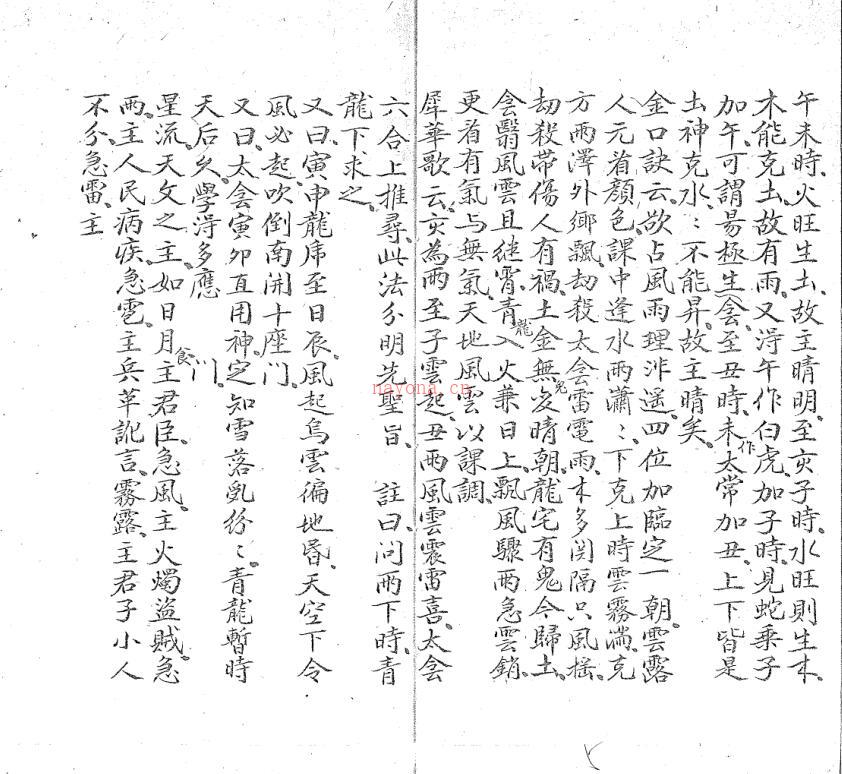 午未時、火旺生土、故主晴明、至亥子時、水旺則生木、
木能克土、故有雨、又得午作白虎、加子時、見蛇乘子
加午、可謂昜極生侌、至丑時、未作太常加丑、上下皆是
土神克水、:不能昇、故主晴矣、
金口訣云、欲占風雨理非遥、四位加臨定一朝、雲露
人元看顏色、課中逢水雨瀟:、下克上時雲霧滿、克
方雨澤外鄉飄、劫殺太侌雷電雨、木多関隔只風搖、
劫殺帶傷人有禍、土金無炁晴朝、龍宅有鬼今歸土、
侌翳風雲且継霄、青龍入火兼日上、飄風驟雨急雲銷、
更看有氣与無氣、天地風雲以課調、
犀華歌云、亥為雨至子雲起、丑雨風雲震雷喜、太侌
六合上推尋、此法分明先聖旨、 註曰、问雨下時、青
龍下求之、
又曰、寅申龍虎至日辰、風起烏雲徧地昏、天空下令
風必起、吹倒南開十座門、
又曰、太侌寅夘直用神、定知雪落亂紛:、青龍暫時
天后爻、學得多應門、
星流、天文之主、如日月食、主君臣、急風、主火燭盜賊、急
雨、主人民病疾、急雹、主兵革訛言、霧露、主君子小人
不分、急雷、主
nayona.cn